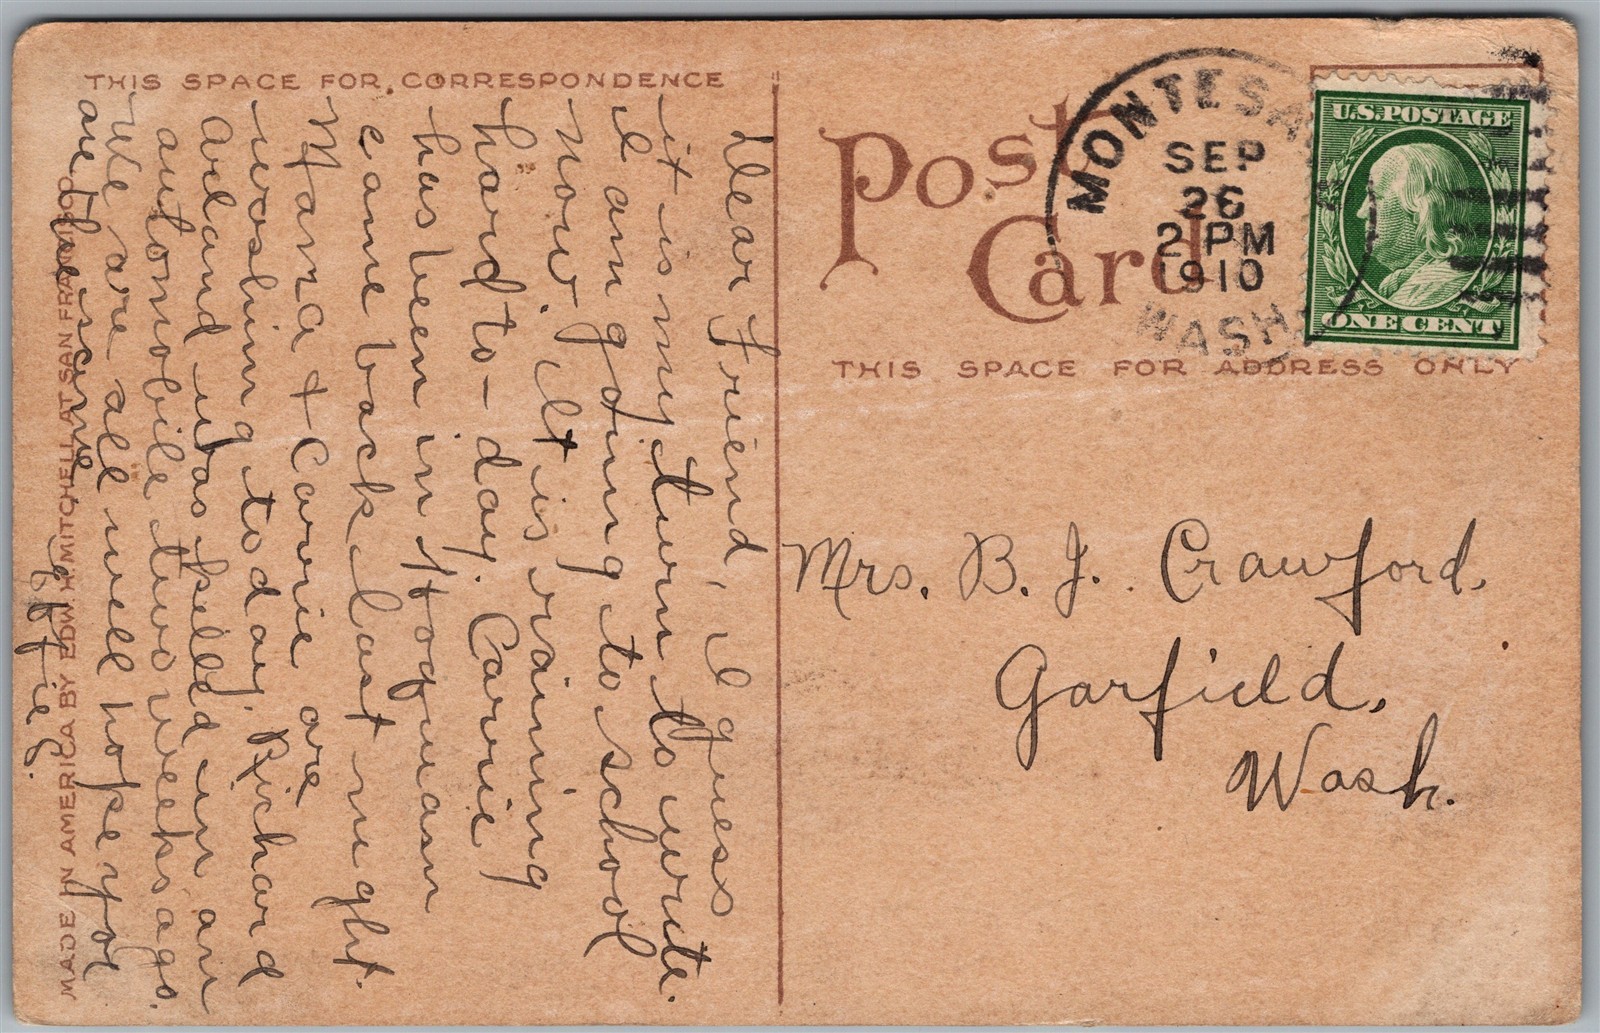 THIS SPACE FOR CORRESPONDENCE
Dear Friend, I guess
it is my turn to write.
I am going to school
now. It is raining
hard to-day. Carrie
has been in Hoquiam
came back last night.
& Carrie are
washing today. Richard
was killed in an
automobile two weeks ago.
We are all well hope you
are the same
Effie G.
MADE IN AMERICA BY EDW. H. MITCHELL AT SAN FRANCISCO
Post Card
MONTESA
SEP
26
2 PM
1910
WASH
U.S. POSTAGE
ONE CENT
THIS SPACE FOR ADDRESS ONLY
Mrs. B. J. Crawford,
Garfield,
Wash.